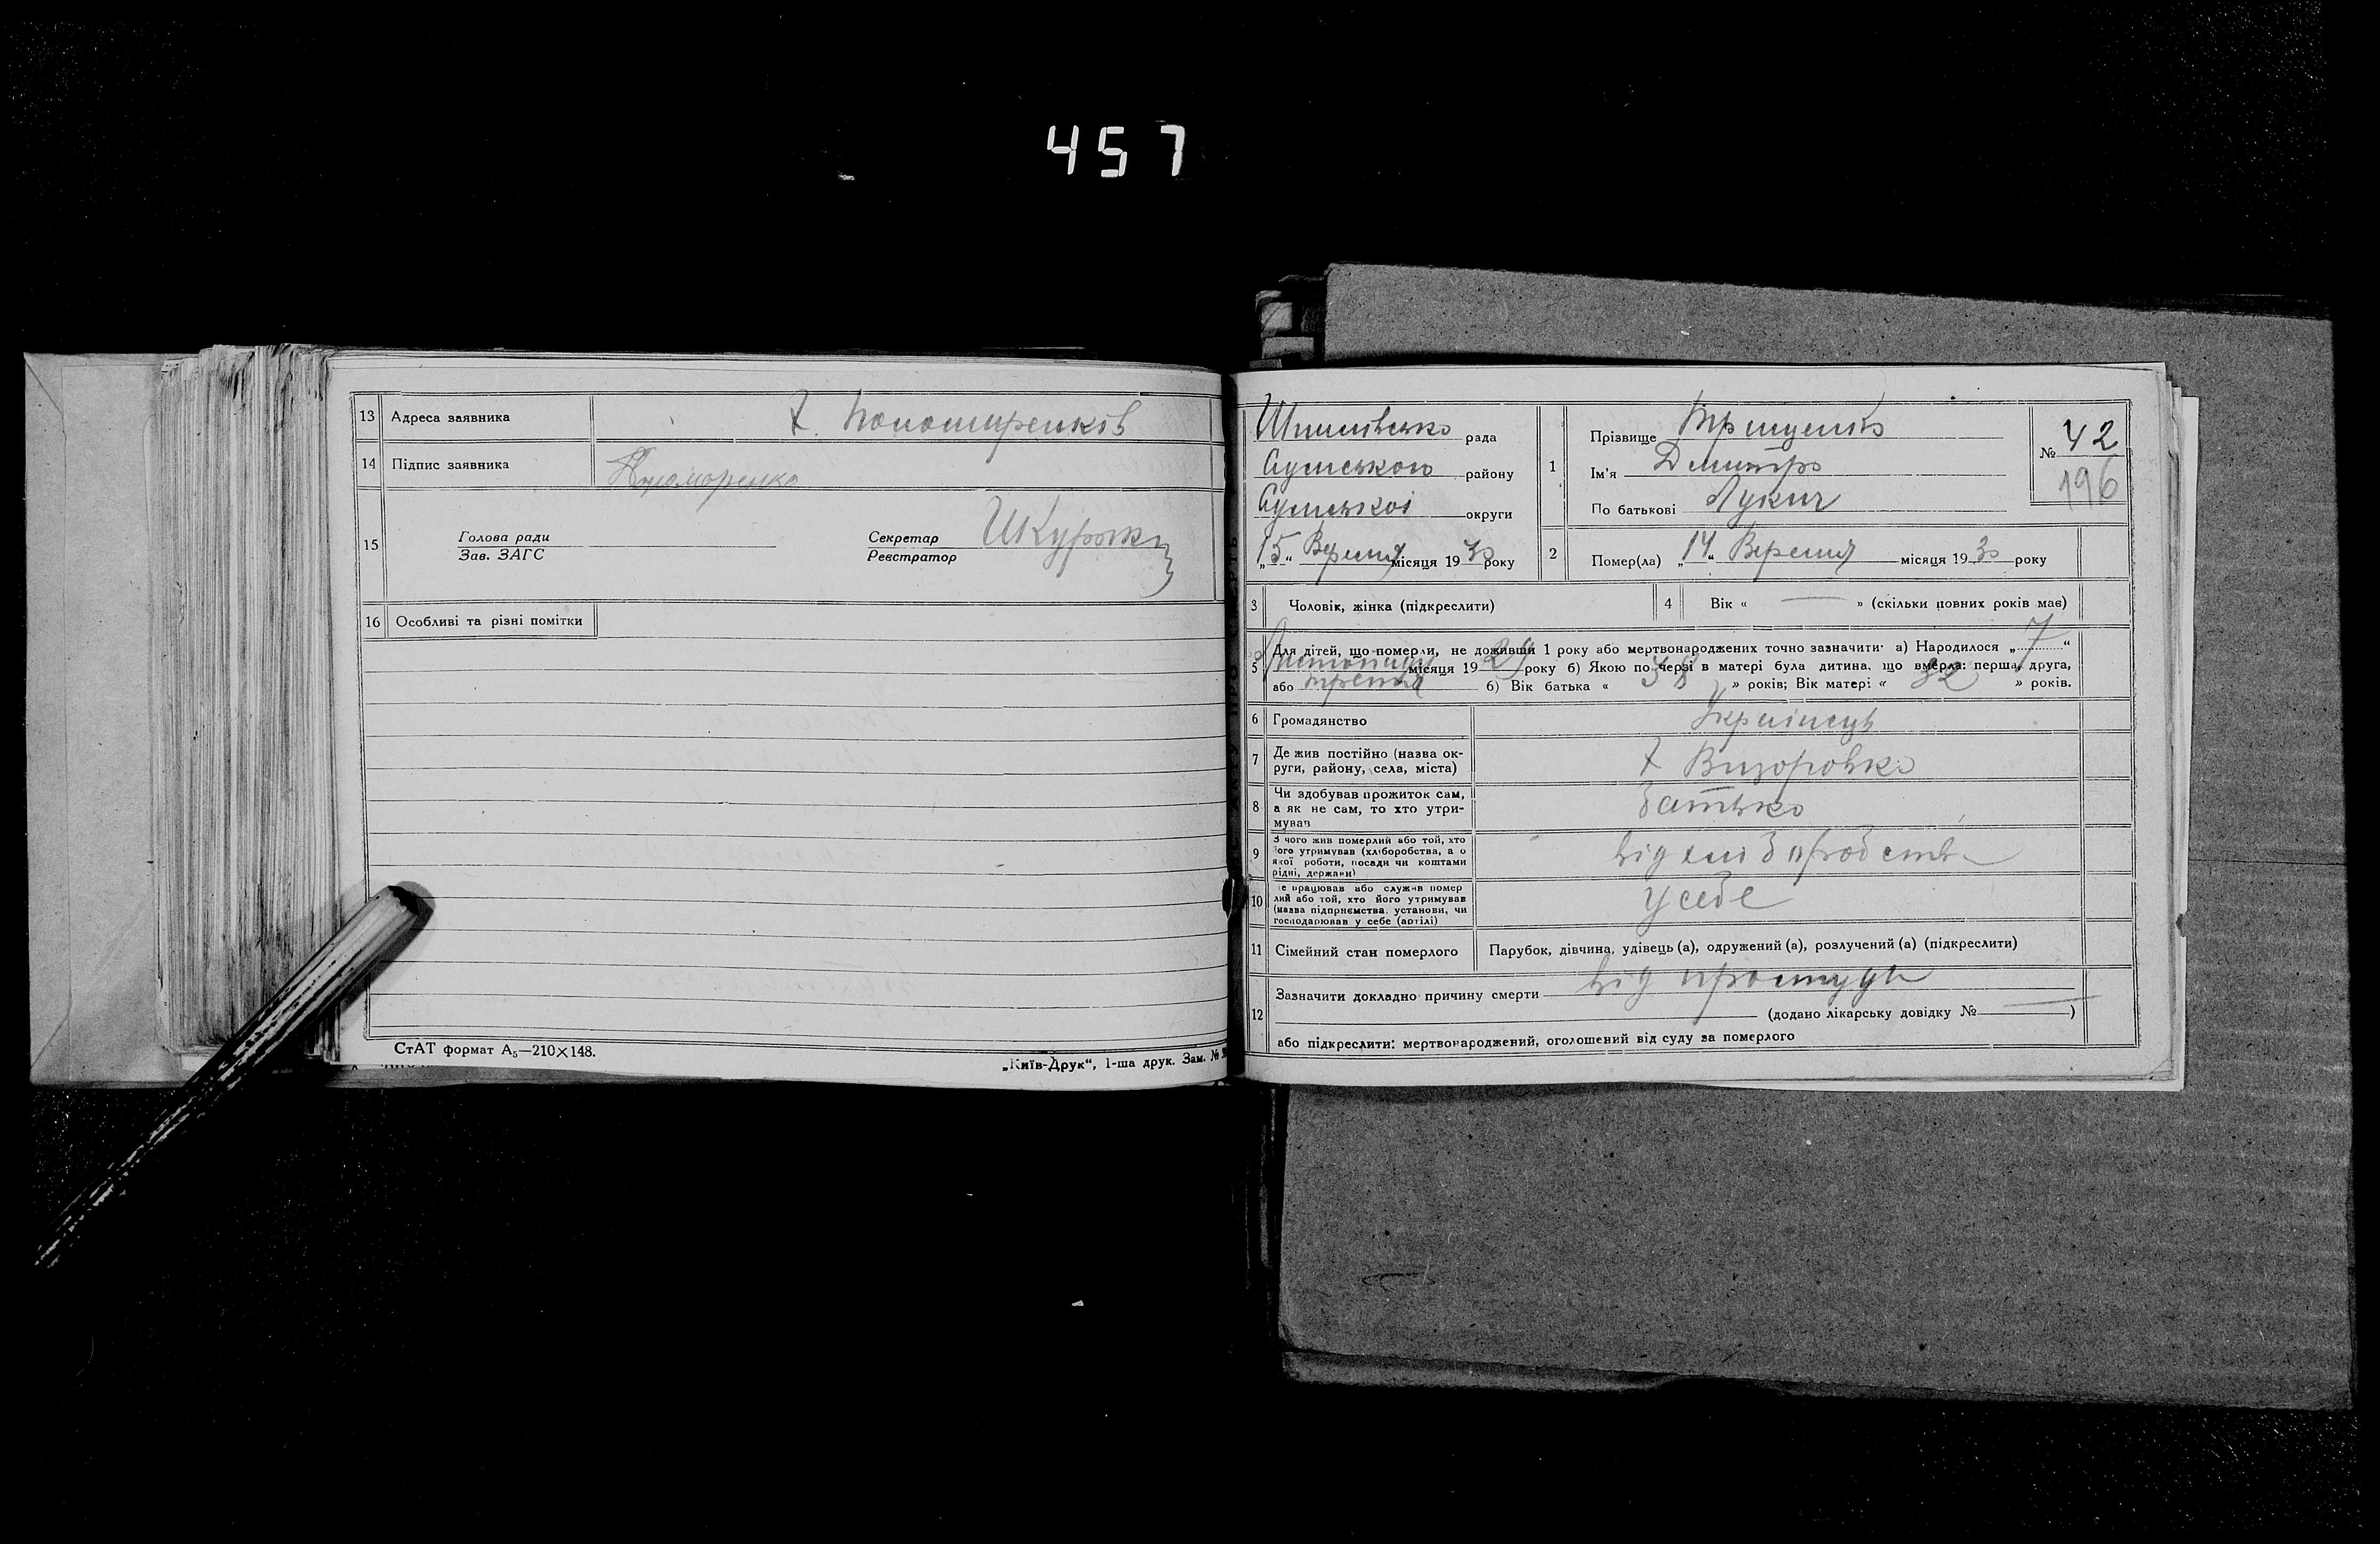 457
13 Адреса заявника Х. Понамаренків
14 Підпис заявника
15 Голова ради
Зав. ЗАГС
Секретар
Реєстратор
16 Особливі та різні помітки
СтАТ формат А₅—210×148.
„Київ-Друк“, 1-ша друк. Зам. №
рада
Сумського району
Сумської округи
„15“ Вересня місяця 1930 року
1 Прізвище
Ім'я Дмитро
По батькові Лукич
№ 42
196
2 Помер(ла) „14“ Вересня місяця 1930 року
3 Чоловік, жінка (підкреслити)
4 Вік « — » (скільки повних років має)
5 Для дітей, що померли, не доживши 1 року або мертвонароджених точно зазначити: а) Народилося „7“
Листопада місяця 1929 року б) Якою по черзі в матері була дитина, що вмерла: перша, друга,
або третя б) Вік батька « 38 » років; Вік матері « 32 » років.
6 Громадянство Українець
7 Де жив постійно (назва округи, району, села, міста) Х
8 Чи здобував прожиток сам,
а як не сам, то хто утримував
батько
9 З чого жив померлий або той, хто
його утримував (хліборобства, а о
якої роботи, посади чи коштами
рідні, держави)
від хліборобства
10 Де працював або служив помер
лий або той, хто його утримував
(назва підприємства, установи, чи
господарював у себе (артілі)
у себе
11 Сімейний стан померлого Парубок, дівчина, удівець (а), одружений (а), розлучений (а) (підкреслити)
12 Зазначити докладно причину смерти від простуди
(додано лікарську довідку № — )
або підкреслити: мертвонароджений, оголошений від суду за померлого